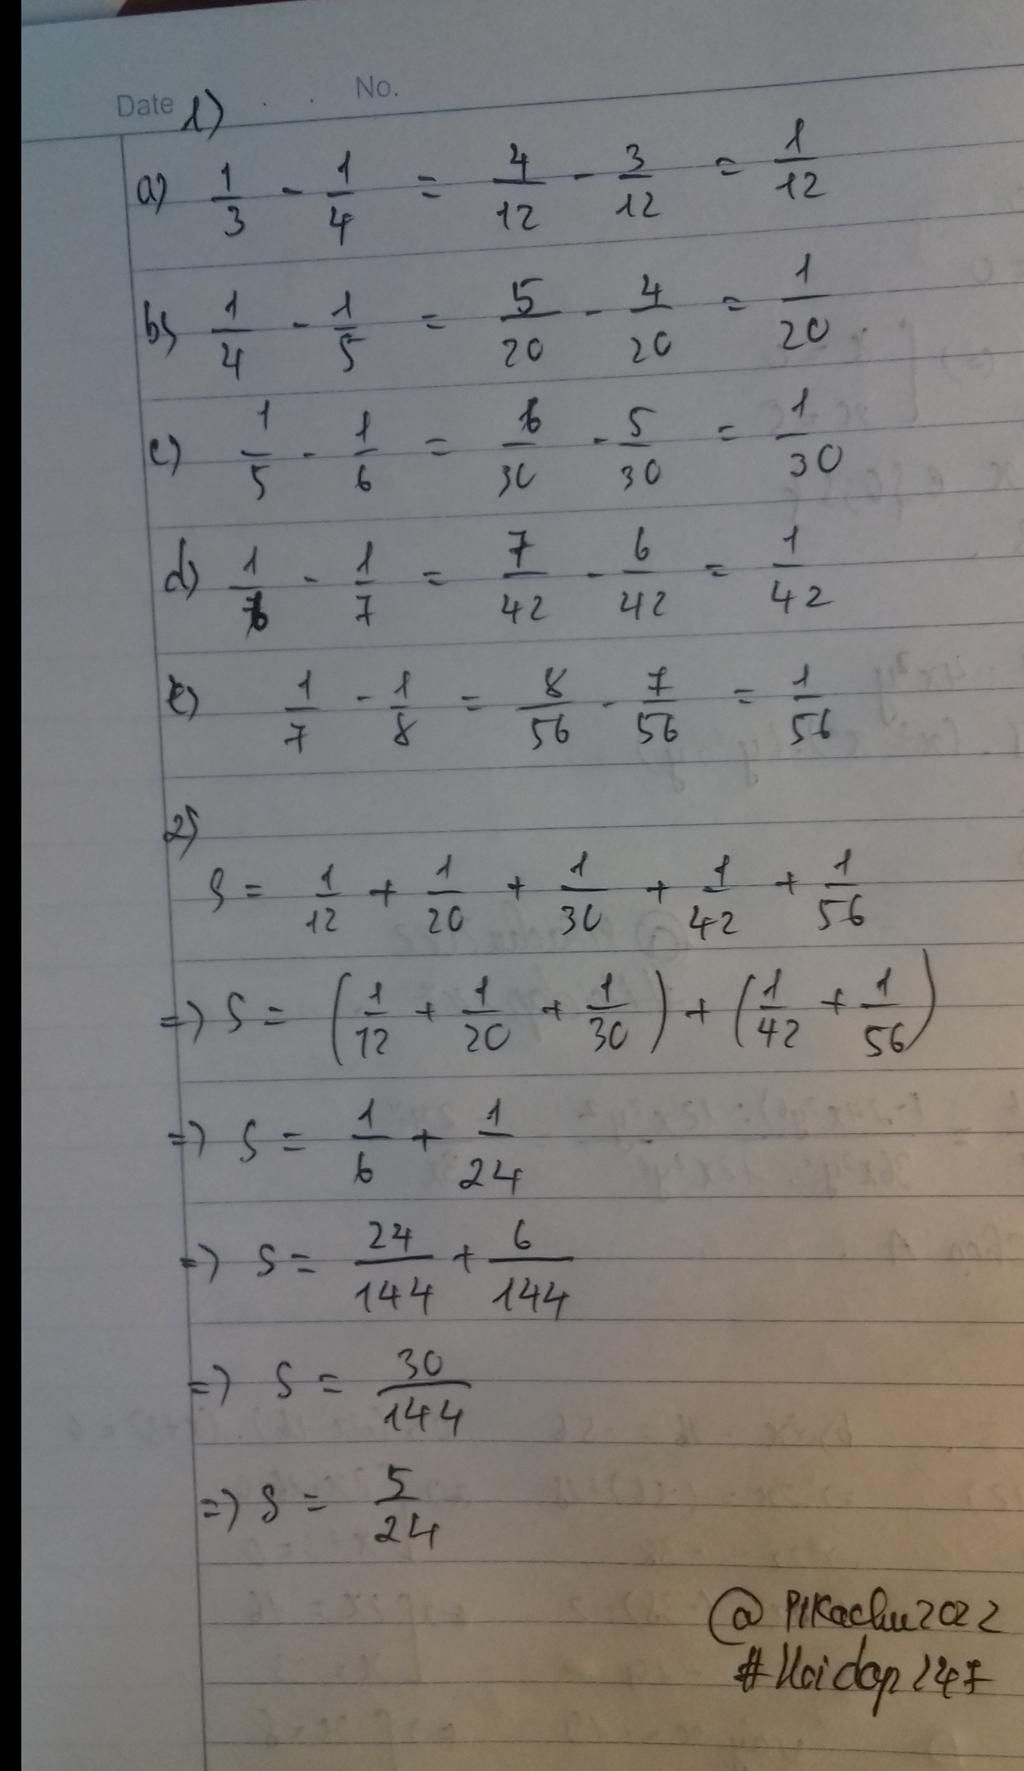 Date 1) No.
a) 1/3 - 1/4 = 4/12 - 3/12 = 1/12
b) 1/4 - 1/5 = 5/20 - 4/20 = 1/20
c) 1/5 - 1/6 = 6/30 - 5/30 = 1/30
d) 1/6 - 1/7 = 7/42 - 6/42 = 1/42
e) 1/7 - 1/8 = 8/56 - 7/56 = 1/56
2)
S = 1/12 + 1/20 + 1/30 + 1/42 + 1/56
=> S = (1/12 + 1/20 + 1/30) + (1/42 + 1/56)
=> S = 1/6 + 1/24
=> S = 24/144 + 6/144
=> S = 30/144
=> S = 5/24
@Pikachu2022
#Hoidap247